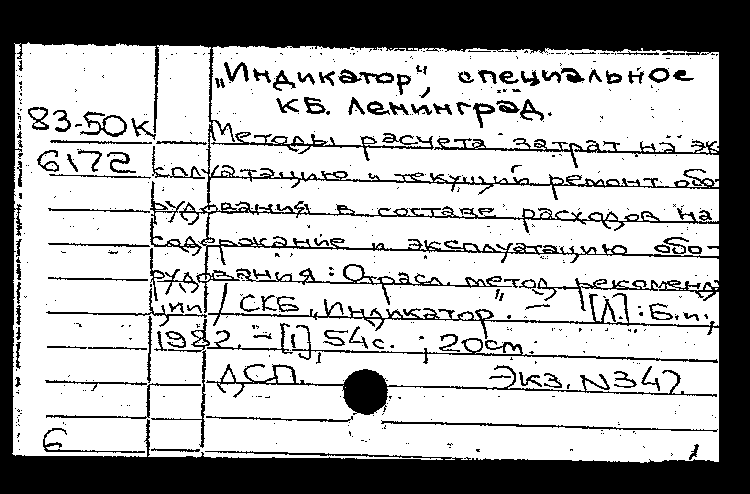 „Индикатор", специальное
КБ. Ленинград.
83-50к
Методы расчета затрат на эк
6172
сплуатацию и текущий ремонт обо-
рудования в составе расходов на
содержание и эксплуатацию обо-
рудования : Отрасл. метод. рекоменда
ции / СКБ „Индикатор". — [Л] : Б.и.,
1982. — [1], 54с. ; 20см.
ДСП. Экз. N347.
6 1